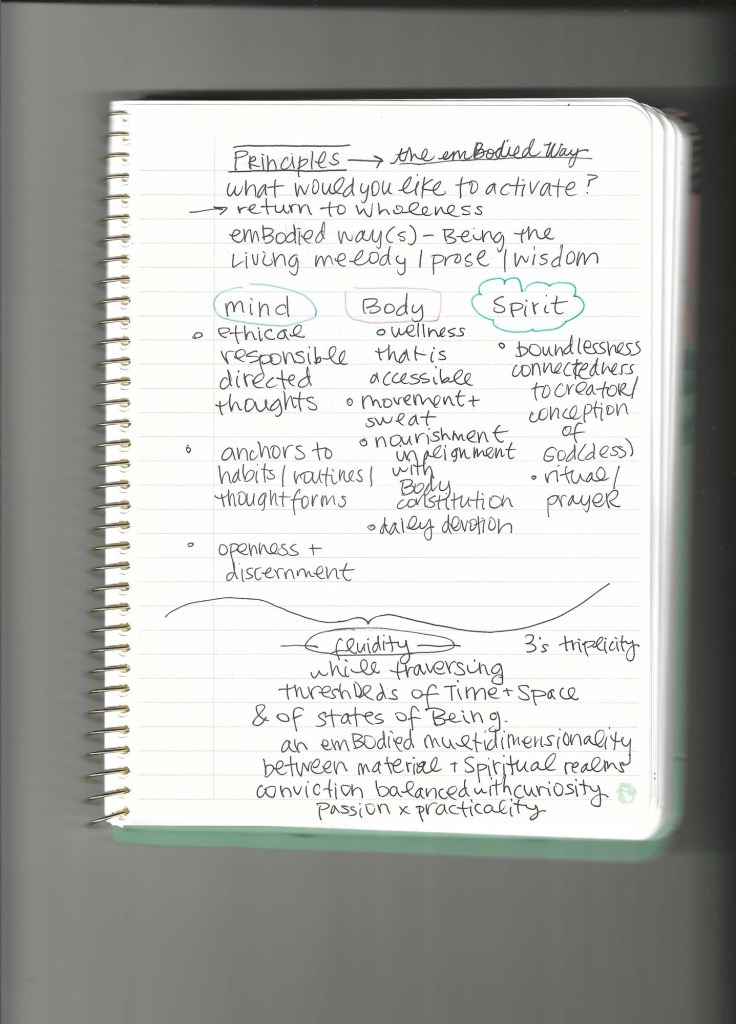 Principles → the emBodied Way
what would you like to activate?
→ return to wholeness
emBodied way(s) - Being the
Living melody / prose / wisdom
mind
• ethical
responsible
directed
thoughts
• anchors to
habits / routines /
thought forms
• openness +
discernment
Body
• wellness
that is
accessible
• movement +
sweat
• nourishment
in alignment
with
Body
constitution
• daily devotion
Spirit
• boundlessness
connectedness
to creator /
conception
of
God(dess)
• ritual /
prayer
fluidity
3's triplicity
while traversing
thresholds of Time + Space
& of states of Being.
an emBodied multidimensionality
between material + Spiritual realms
conviction balanced with curiosity
passion x practicality